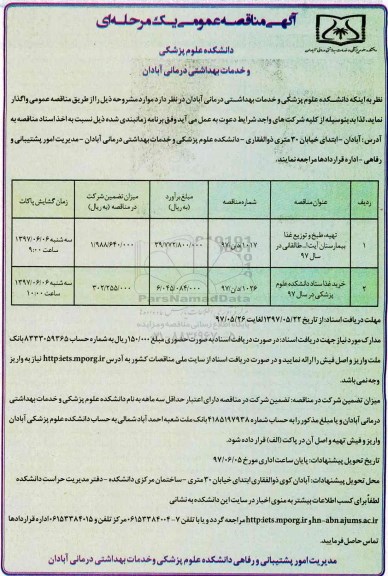 آگهی مناقصه عمومی یک مرحله‌ای
دانشکده علوم پزشکی
و خدمات بهداشتی درمانی آبادان
نظر به اینکه دانشکده علوم پزشکی و خدمات بهداشتی درمانی آبادان در نظر دارد موارد مشروحه ذیل را از طریق مناقصه عمومی واگذار
نماید، لذا بدینوسیله از کلیه شرکت های واجد شرایط دعوت به عمل می آید وفق برنامه زمانبندی شده ذیل نسبت به اخذ اسناد مناقصه به
آدرس: آبادان -ابتدای خیابان ۳۰ متری ذوالفقاری -دانشکده علوم پزشکی و خدمات بهداشتی درمانی آبادان -مدیریت امور پشتیبانی و
رفاهی -اداره قراردادها مراجعه نمایند.
ردیف عنوان مناقصه شماره مناقصه مبلغ برآورد (به ریال) میزان تضمین شرکت در مناقصه (به ریال) زمان گشایش پاکات
۱ تهیه، طبخ و توزیع غذا بیمارستان آیت‌ا... طالقانی در سال ۹۷ ۳۹/۷۷۲/۸۰۰/۰۰۰ ۱/۹۸۸/۶۴۰/۰۰۰ سه شنبه ۱۳۹۷/۰۶/۰۶ ساعت ۹:۰۰
۲ خرید غذا ستاد دانشکده علوم پزشکی در سال ۹۷ ۶/۰۴۵/۰۸۴/۰۰۰ ۳۰۲/۲۵۵/۰۰۰ سه شنبه ۱۳۹۷/۰۶/۰۶ ساعت ۱۰:۰۰
ParsNamadData
پایگاه اطلاع رسانی مناقصه و مزایده
مهلت دریافت اسناد: از تاریخ ۱۳۹۷/۰۵/۲۲ لغایت ۹۷/۰۵/۲۶
مدارک مورد نیاز جهت دریافت اسناد: در صورت دریافت اسناد به صورت حضوری مبلغ ۱۵۰/۰۰۰ ریال به شماره حساب ۸۳۳۳۰۵۹۳۶۵ بانک
ملت واریز و اصل فیش را ارائه نمایید و در صورت دریافت اسناد از سایت ملی مناقصات کشور به آدرس http:iets.mporg.ir نیاز به واریز
وجه نمی باشد.
میزان تضمین شرکت در مناقصه: تضمین شرکت در مناقصه دارای اعتبار حداقل سه ماهه به نام دانشکده علوم پزشکی و خدمات بهداشتی
درمانی آبادان و یا مبلغ مذکور را به حساب شماره ۴۱۸۵۱۹۷۹۳۸ بانک ملت شعبه احمد آباد شمالی به حساب دانشکده علوم پزشکی آبادان
واریز و فیش تهیه و اصل آن در پاکت (الف) قرار داده شود.
تاریخ تحویل پیشنهادات: پایان ساعت اداری مورخ ۹۷/۰۶/۰۵
محل تحویل پیشنهادات: آبادان کوی ذوالفقاری ابتدای خیابان ۳۰ متری -ساختمان مرکزی دانشکده -دفتر مدیریت حراست دانشکده
لطفاً برای کسب اطلاعات بیشتر به منوی اخبار در سایت این دانشکده به نشانی
hn-abn.ajums.ac.ir و http:iets.mporg.ir مراجعه گردد و یا با تلفن ۷-۰۶۱۵۳۳۸۴۰۰۴ مرکز تلفن و ۰۶۱۵۳۳۸۴۰۱۵ اداره قراردادها
تماس حاصل فرمایید.
مدیریت امور پشتیبانی و رفاهی دانشکده علوم پزشکی و خدمات بهداشتی درمانی آبادان